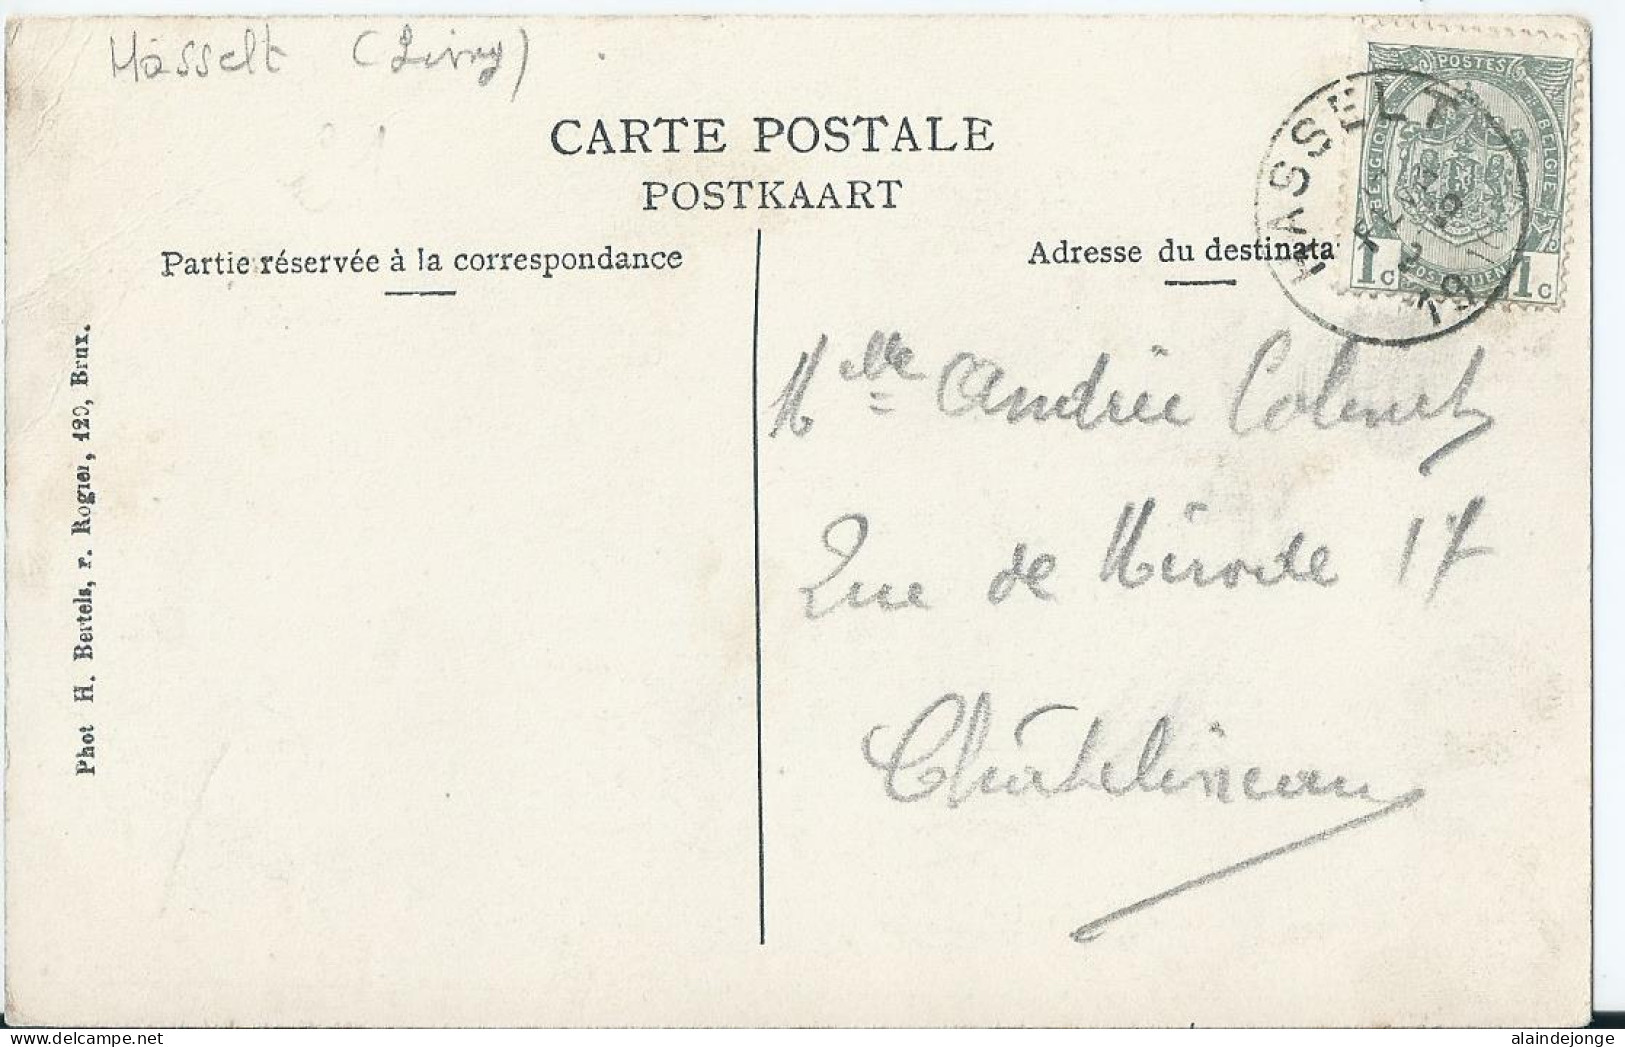 Hasselt
CARTE POSTALE
POSTKAART
Partie réservée à la correspondance
Adresse du destinata
POSTES
BELGIQUE
BELGIE
POSTERIJEN
1c 1c
HASSELT
Mlle Andrée
Rue de Mérode 17
Châtelineau
Phot H. Bertels, r. Rogier, 120, Brux.
alaindejonge